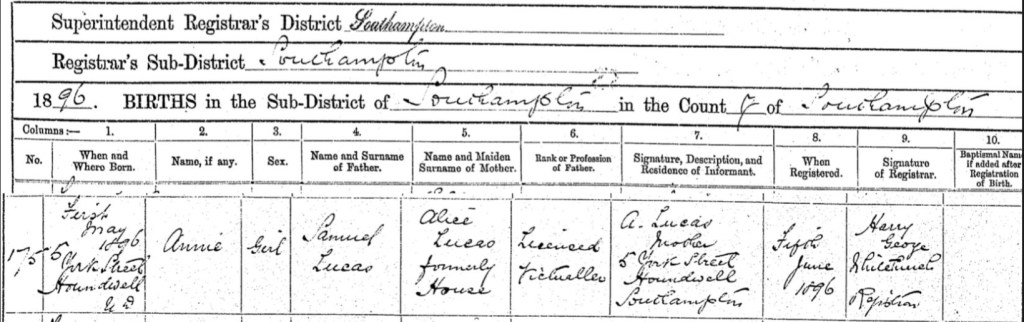 Superintendent Registrar's District Southampton
Registrar's Sub-District Southampton
1896. BIRTHS in the Sub-District of Southampton in the County of Southampton
Columns :— 1. 2. 3. 4. 5. 6. 7. 8. 9. 10.
No. When and Where Born. Name, if any. Sex. Name and Surname of Father. Name and Maiden Surname of Mother. Rank or Profession of Father. Signature, Description, and Residence of Informant. When Registered. Signature of Registrar. Baptismal Name if added after Registration of Birth.
175
First
May
1896
5
York Street
Houndwell
U D
Annie
Girl
Samuel
Lucas
Alice
Lucas
formerly
House
Licensed
Victualler
A. Lucas
Mother
5 York Street
Houndwell
Southampton
Fifth
June
1896
Harry
George
Whitchurch
Registrar